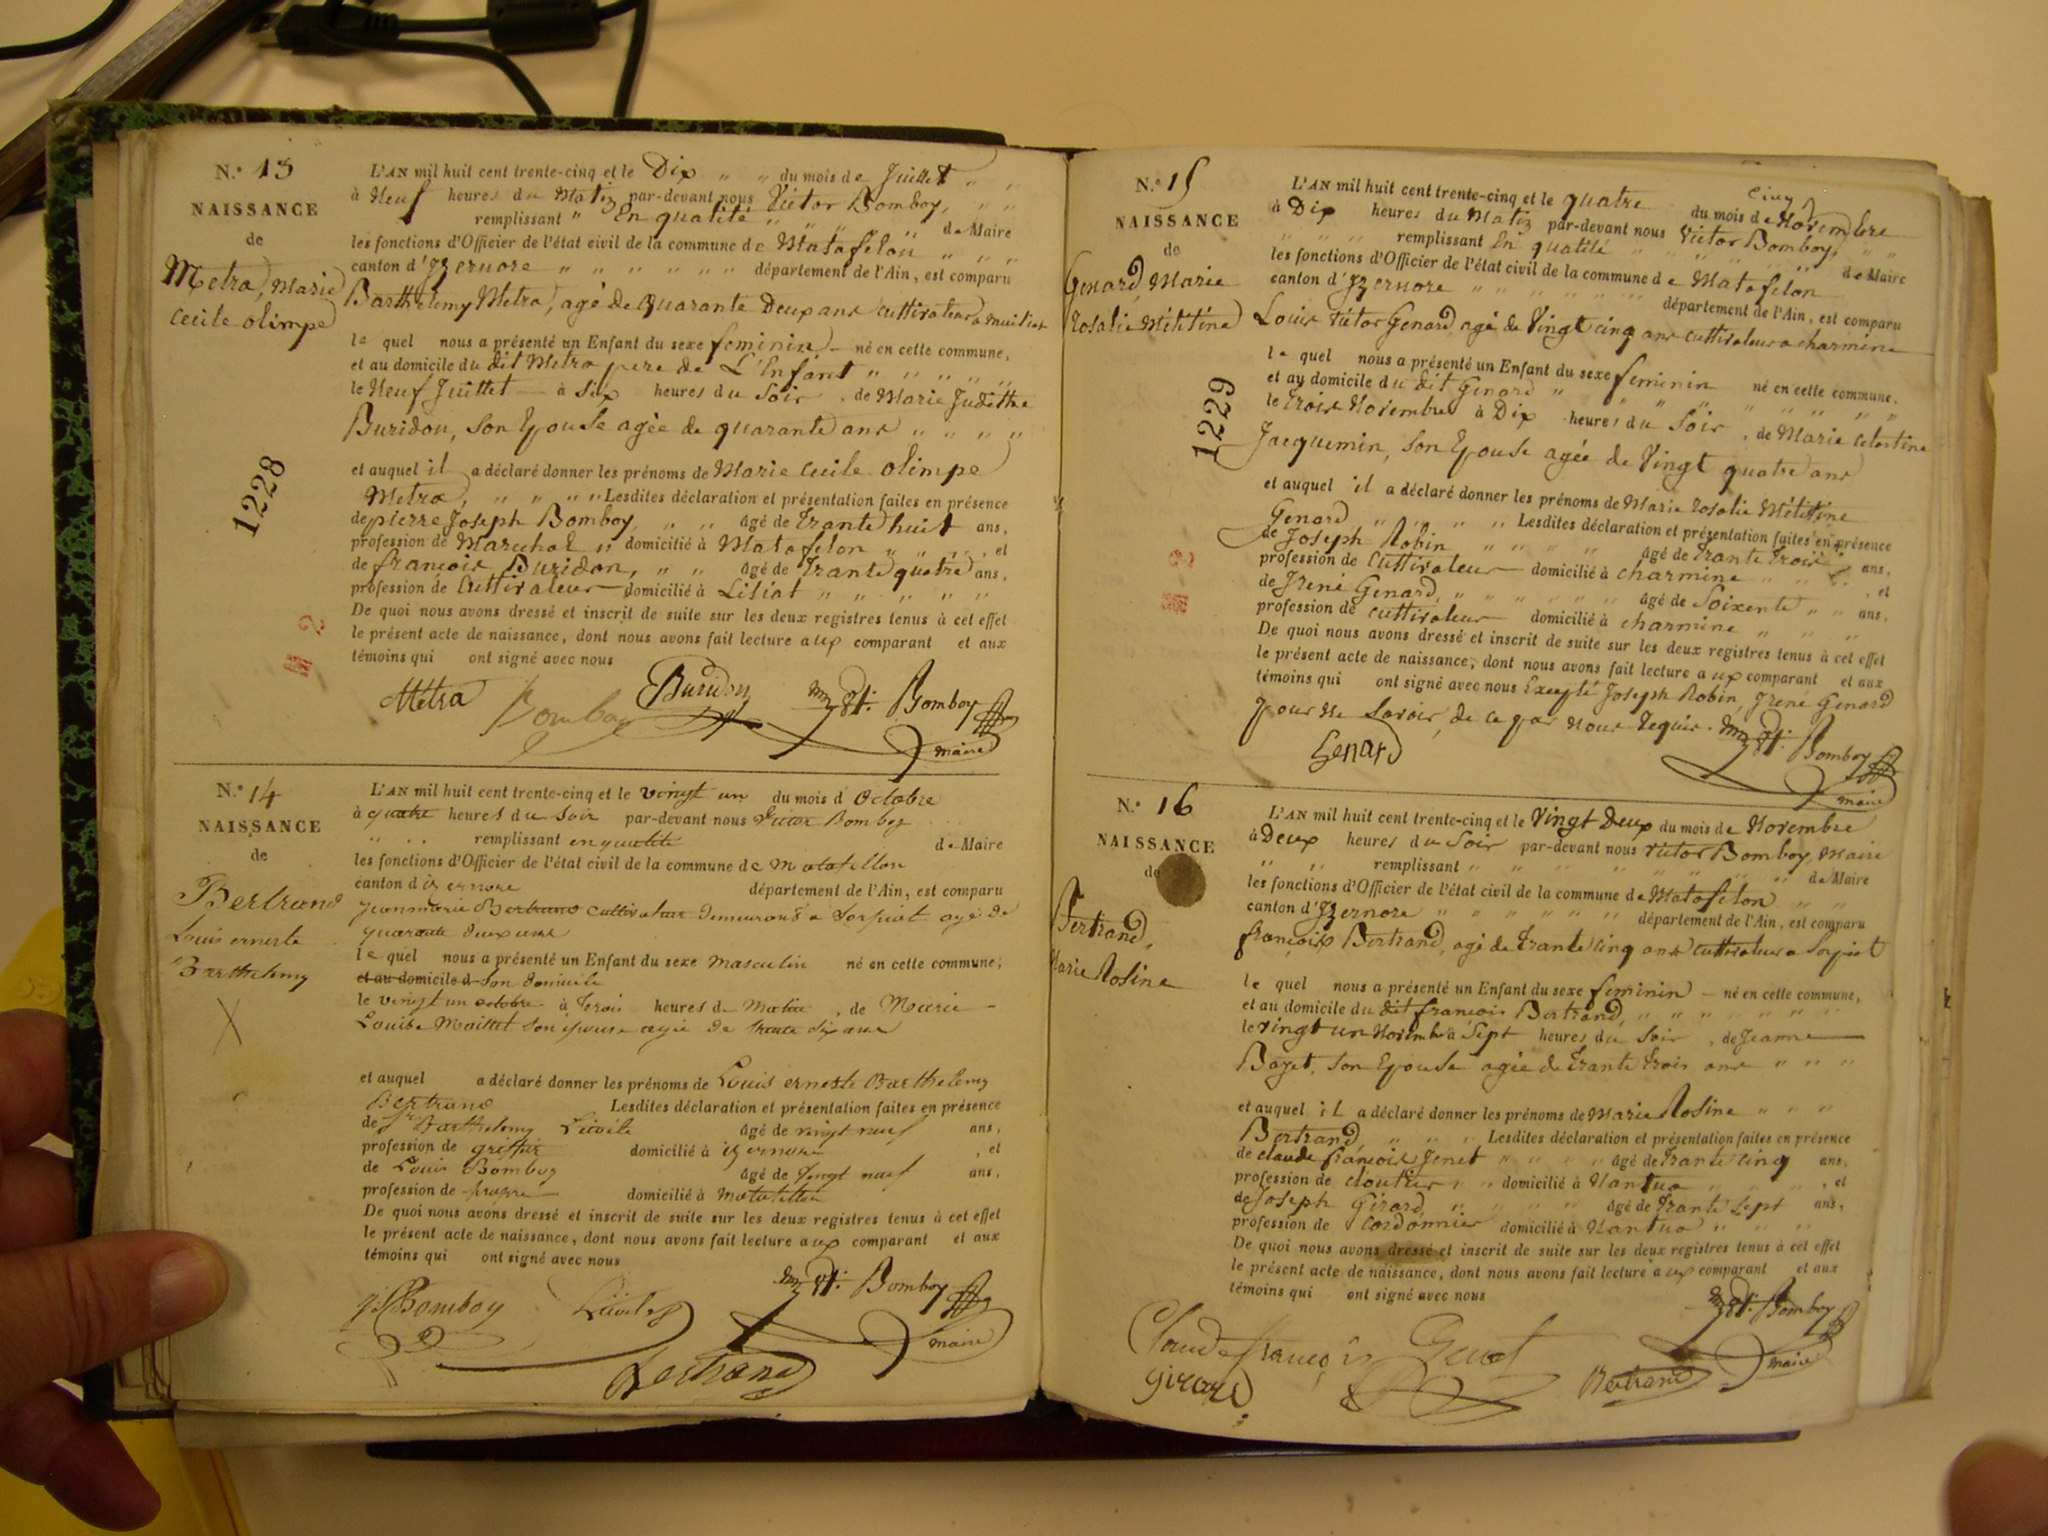 N.o 13
NAISSANCE
de
Metra, Marie
Cecile olimpe
1228
L'AN mil huit cent trente-cinq et le Dix du mois de Juillet
à Neuf heures du Matin par-devant nous Victor Bomboy,
remplissant En qualité de Maire
les fonctions d'Officier de l'état civil de la commune de Matafelon
canton d'Izernore département de l'Ain, est comparu
Barthelemy Metra, agé de quarante Deux ans cultivateur a
le quel nous a présenté un Enfant du sexe feminin né en cette commune,
et au domicile du dit Metra pere de L'Enfant
le Neuf Juillet à Six heures du Soir, de Marie Judithe
Buridon, son Epouse agée de quarante ans
et auquel il a déclaré donner les prénoms de Marie Cecile olimpe
Metra, Lesdites déclaration et présentation faites en présence
de pierre Joseph Bomboy, âgé de trante huit ans,
profession de Marechal domicilié à Matafelon, et
de françois Buridon, âgé de trante quatre ans,
profession de Cultivateur domicilié à Lisiat
De quoi nous avons dressé et inscrit de suite sur les deux registres tenus à cet effet
le présent acte de naissance, dont nous avons fait lecture aux comparant et aux
témoins qui ont signé avec nous
Métra Bomboy Buridon Bomboy
maire
N.o 14
NAISSANCE
de
Bertrand
Louis erneste
Barthelemy
X
L'AN mil huit cent trente-cinq et le vingt un du mois d'Octobre
à quatre heures du Soir par-devant nous Victor Bomboy
remplissant en qualité de Maire
les fonctions d'Officier de l'état civil de la commune de matafellon
canton d'izernore département de l'Ain, est comparu
jean marie Bertrand cultivateur demeurant a Sorpiat agé de
quarante deux ans
le quel nous a présenté un Enfant du sexe masculin né en cette commune,
et au domicile d son domicile
le vingt un octobre à trois heures du matin, de Marie
Louise Maillet son épouse agée de trante six ans
et auquel a déclaré donner les prénoms de Louis erneste Barthelemy
Bertrand Lesdites déclaration et présentation faites en présence
de Barthelemy âgé de vingt neuf ans,
profession de greffier domicilié à izernore, et
de Louis Bomboy âgé de vingt neuf ans,
profession de domicilié à Matafellon
De quoi nous avons dressé et inscrit de suite sur les deux registres tenus à cet effet
le présent acte de naissance, dont nous avons fait lecture aux comparant et aux
témoins qui ont signé avec nous
Bomboy Bomboy
maire
Bertrand
N.o 15
NAISSANCE
de
Genard, Marie
Rosalie Mélitine
1229
cinq
L'AN mil huit cent trente-cinq et le quatre du mois de Novembre
à Dix heures du Matin par-devant nous Victor Bomboy,
remplissant En qualité de Maire
les fonctions d'Officier de l'état civil de la commune de Matafelon
canton d'Izernore département de l'Ain, est comparu
Louis Victor Genard, agé de Vingt cinq ans cultivateur a charmine
le quel nous a présenté un Enfant du sexe feminin né en cette commune,
et au domicile du dit Genard
le trois Novembre à Dix heures du Soir, de Marie Celestine
Jacquemin, son Epouse agée de Vingt quatre ans
et auquel il a déclaré donner les prénoms de Marie Rosalie Mélitine
Genard Lesdites déclaration et présentation faites en présence
de Joseph Robin âgé de trante trois ans,
profession de Cultivateur domicilié à charmine, et
de Irené Genard, âgé de Soixente ans,
profession de cultivateur domicilié à charmine
De quoi nous avons dressé et inscrit de suite sur les deux registres tenus à cet effet
le présent acte de naissance, dont nous avons fait lecture aux comparant et aux
témoins qui ont signé avec nous Excepté Joseph Robin, Irené Genard
pour ne Savoir, de ce par nous Requis.
Genard Bomboy
maire
N.o 16
NAISSANCE
de
Bertrand,
Marie Rosine
L'AN mil huit cent trente-cinq et le Vingt Deux du mois de Novembre
à Deux heures du Soir par-devant nous Victor Bomboy, Maire
remplissant de Maire
les fonctions d'Officier de l'état civil de la commune de Matafelon
canton d'Izernore département de l'Ain, est comparu
françois Bertrand, agé de trante cinq ans cultivateur a Sorpiat
le quel nous a présenté un Enfant du sexe feminin né en cette commune,
et au domicile du dit françois Bertrand,
le vingt un Novembre à Sept heures du Soir, de Jeanne
Baget, son Epouse agée de trante trois ans
et auquel il a déclaré donner les prénoms de Marie Rosine
Bertrand, Lesdites déclaration et présentation faites en présence
de claude françois Jenet âgé de trante cinq ans,
profession de cloutier domicilié à Nantua, et
de Joseph Girard, âgé de trante Sept ans,
profession de Cordonnier domicilié à Nantua
De quoi nous avons dressé et inscrit de suite sur les deux registres tenus à cet effet
le présent acte de naissance, dont nous avons fait lecture aux comparant et aux
témoins qui ont signé avec nous
Bomboy
Claude françois Genet
maire
Girard Bertrand